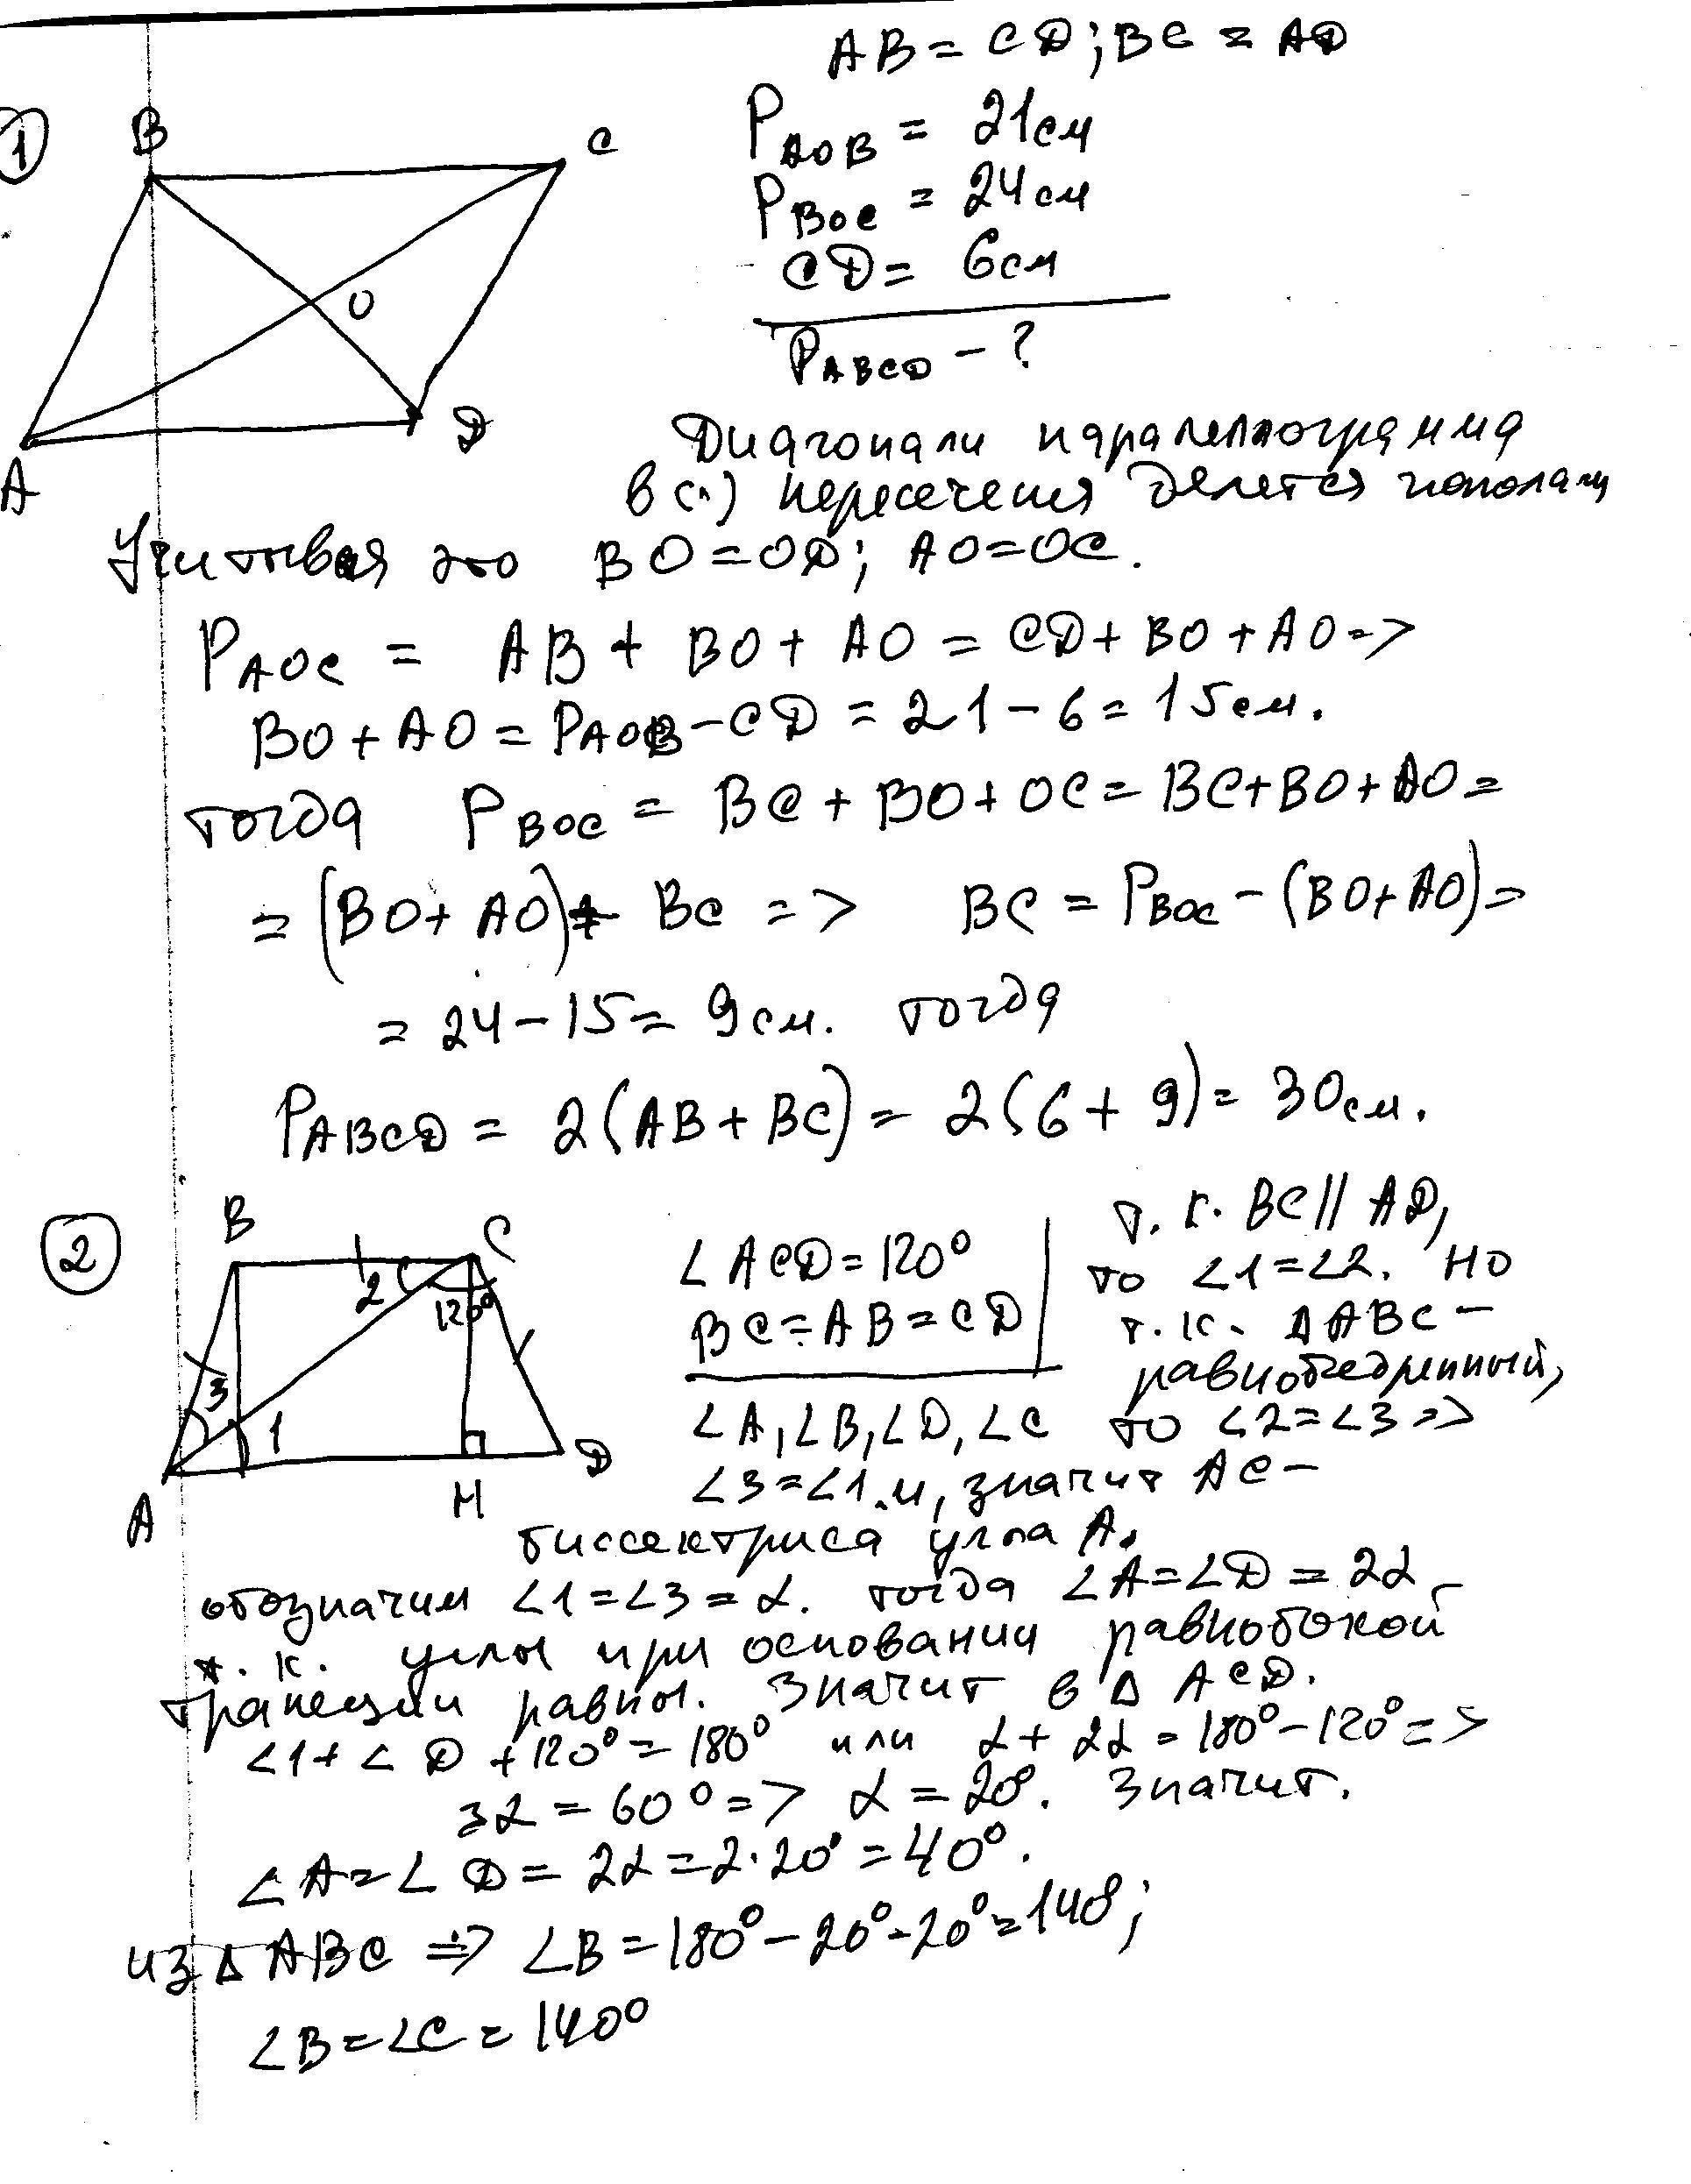 AB = CD; BC = AD
1
B
C
P_AOB = 21см
P_BOC = 24см
CD = 6см
O
P_ABCD - ?
D
A
Диагонали паралеллограмма
в (·) пересечения делется пополам
Учитывая это BO = OD; AO = OC.
P_AOC = AB + BO + AO = CD + BO + AO =>
BO + AO = P_AOB - CD = 21 - 6 = 15см.
тогда P_BOC = BC + BO + OC = BC + BO + AO =
= (BO + AO) + BC => BC = P_BOC - (BO + AO) =
= 24 - 15 = 9см. тогда
P_ABCD = 2(AB + BC) = 2(6 + 9) = 30см.
2
B
C
2
120°
3
1
A
H
D
∠ACD = 120°
BC = AB = CD
∠A, ∠B, ∠D, ∠C
т. к. BC || AD,
то ∠1 = ∠2. Но
т. к. ΔABC -
равнобедренный,
то ∠2 = ∠3 =>
∠3 = ∠1. и, значит AC -
биссектриса угла A.
обозначим ∠1 = ∠3 = α. тогда ∠A = ∠D = 2α
т. к. углы при основании равнобокой
трапеции равны. Значит в Δ ACD.
∠1 + ∠D + 120° = 180° или α + 2α = 180° - 120° =>
3α = 60° => α = 20°. Значит.
∠A = ∠D = 2α = 2·20° = 40°.
из Δ ABC => ∠B = 180° - 20° - 20° = 140°;
∠B = ∠C = 140°